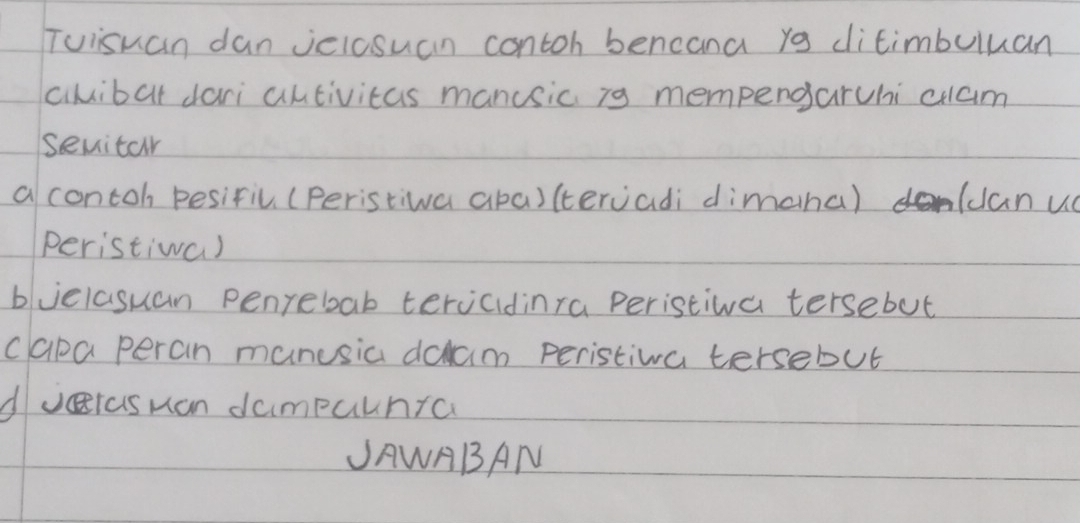 Tuiskan dan jelaskan contoh bencana yg ditimbulkan
akibat dari aktivitas manusia yg mempengaruhi alam
sekitar
a contoh pesifik (Peristiwa apa) (terjadi dimana) (dan
Peristiwa)
b jelaskan Penyebab terjadinya Peristiwa tersebut
c apa peran manusia dalam Peristiwa tersebut
d jelaskan dampaknya
JAWABAN